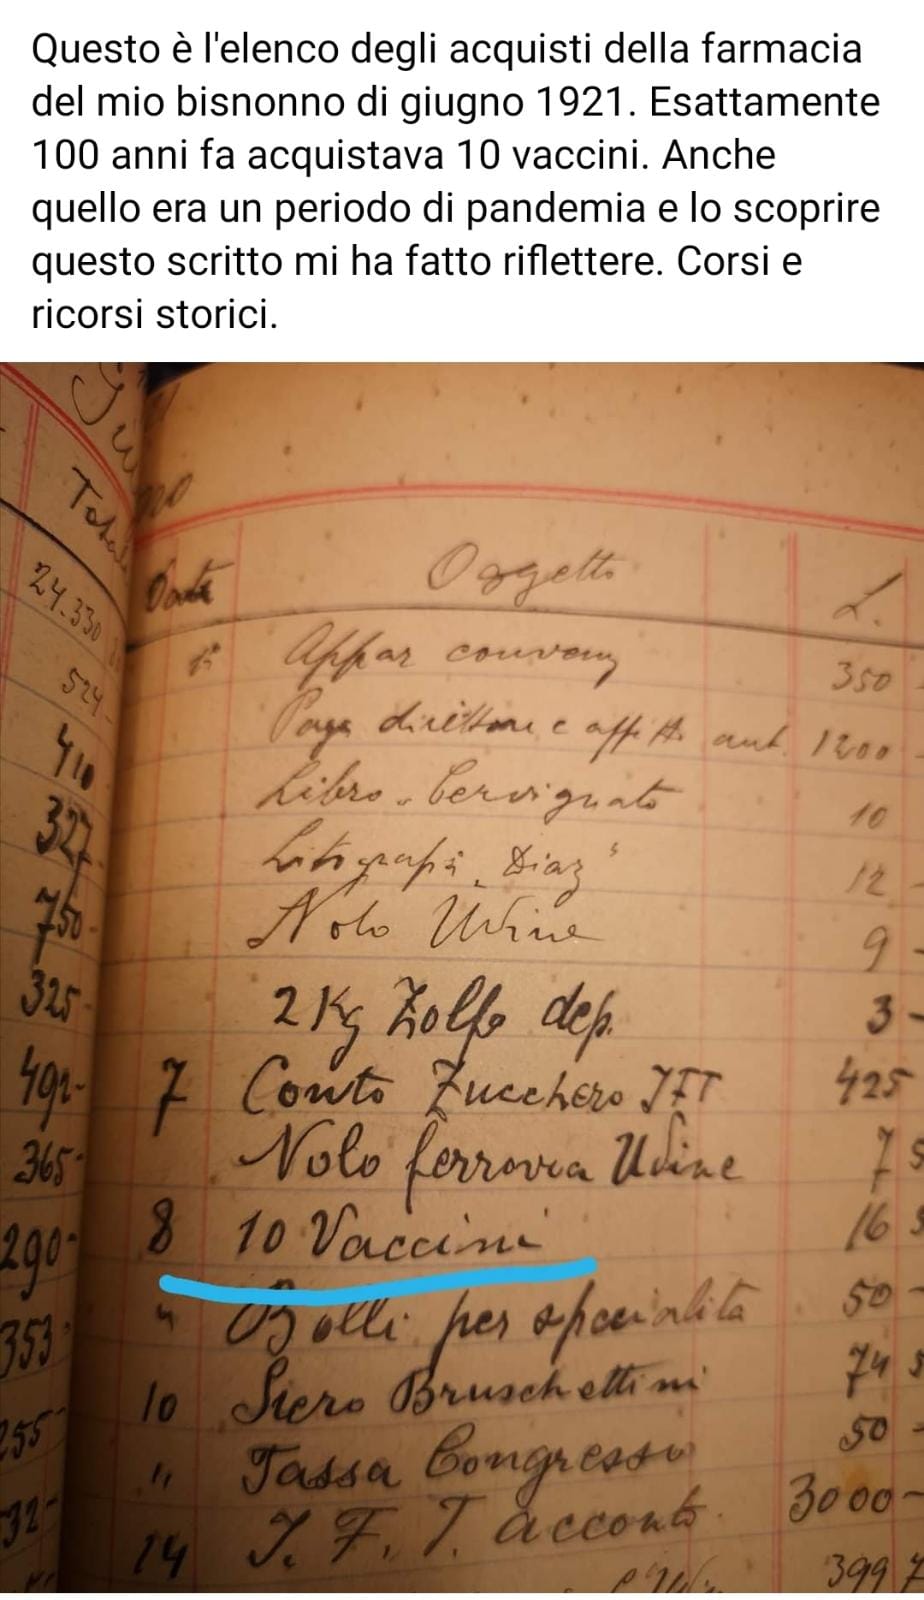 Questo è l'elenco degli acquisti della farmacia
del mio bisnonno di giugno 1921. Esattamente
100 anni fa acquistava 10 vaccini. Anche
quello era un periodo di pandemia e lo scoprire
questo scritto mi ha fatto riflettere. Corsi e
ricorsi storici.
Totale
24.330
524-
410
327-
750-
325-
491-
365-
290-
353-
255-
32-
Data Oggetto L.
Appar 350
Paga direttore e affitto ant. 1200
Libro Cervignato 10
Litografi "Diaz" 12-
Nolo Udine 9-
2 Kg Zolfo dep. 3-
7 Conto Zucchero IFT 425
Nolo ferrovia Udine 7 5
8 10 Vaccini 16 5
" Bolli per specialità 50-
10 Siero Bruschettini 74 5
" Tassa Congresso 50-
14 I. F. T. acconto 3000-
399 7